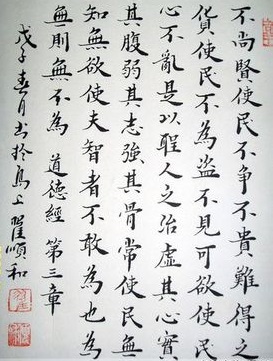 不尚賢使民不争不貴難得之
貨使民不為盜不見可欲使民
心不亂是以聖人之治虛其心實
其腹弱其志強其骨常使民無
知無欲使夫智者不敢為也為
無則無不為 道德經 第三章
戊子春月书於島上 順和